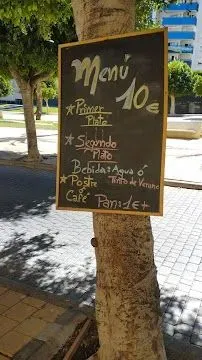 Menú
10€
★ Primer
Plato
★ Segundo
Plato
Bebida: Agua ó
Tinto de Verano
★ Postre
ó
Café
Pan: 1€ +